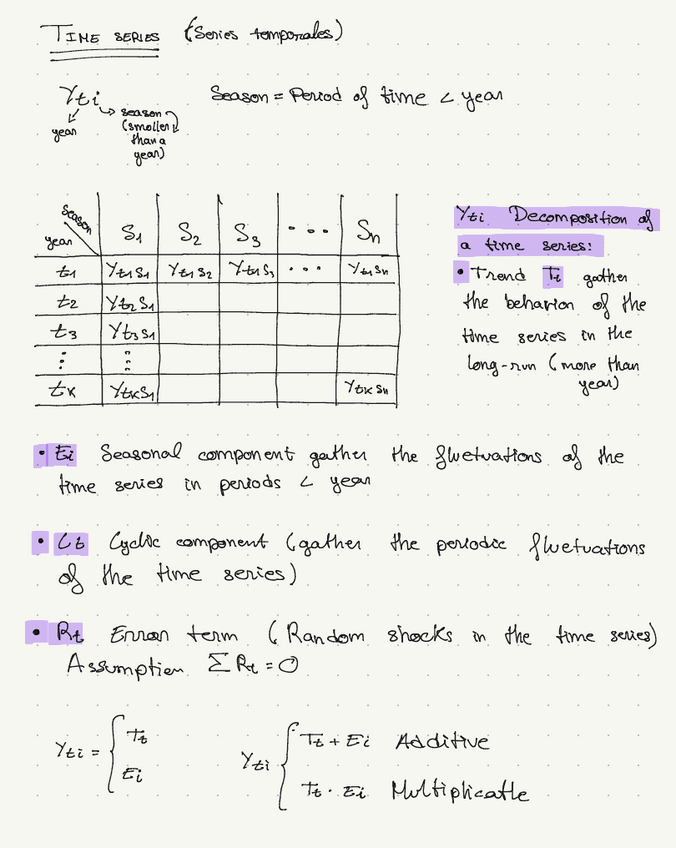 TIME SERIES (Series temporales)
Yti Season = Period of time < year
year season (smaller than a year)
season
year S1 S2 S3 ... Sn
t1 Yt1S1 Yt1S2 Yt1S3 ... Yt1Sn
t2 Yt2S1
t3 Yt3S1
⋮ ⋮
tk YtkS1 YtkSn
Yti Decomposition of
a time series:
• Trend Tt gather
the behavior of the
time series in the
long-run (more than
year)
• Ei Seasonal component gather the fluctuations of the
time series in periods < year
• Ct Cyclic component (gather the periodic fluctuations
of the time series)
• Rt Error term (Random shocks in the time series)
Assumption ΣRt = 0
Yti = { Tt
Ei
Yti { Tt + Ei Additive
Tt · Ei Multiplicatle